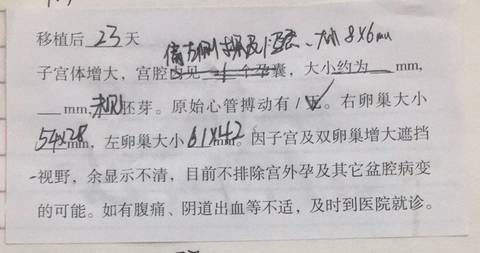 移植后 23 天
偏右侧 8×6mm
子宫体增大，宫腔内见 个孕囊，大小约为 mm，
mm，未见胚芽。原始心管搏动有1无。右卵巢大小
54×28mm，左卵巢大小61×42mm。因子宫及双卵巢增大遮挡
视野，余显示不清，目前不排除宫外孕及其它盆腔病变
的可能。如有腹痛、阴道出血等不适，及时到医院就诊。